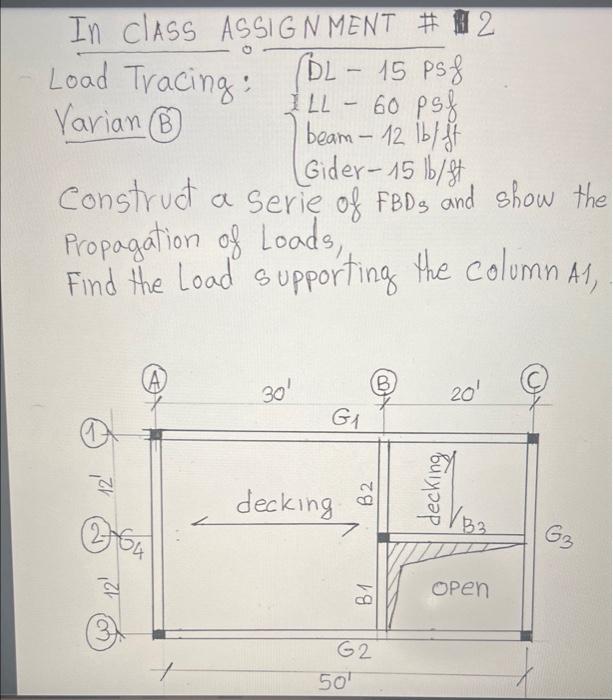 In CLASS ASSIGNMENT # 2
Load Tracing:
Varian B
DL - 15 psf
LL - 60 psf
beam - 12 lb/ft
Gider - 15 lb/ft
Construct a serie of FBDs and show the
Propagation of Loads,
Find the Load supporting the column A1,
A 30' B 20' C
G1
1
12'
decking
B2
decking
2 G4
B3
G3
12'
B1
OPEN
3
G2
50'